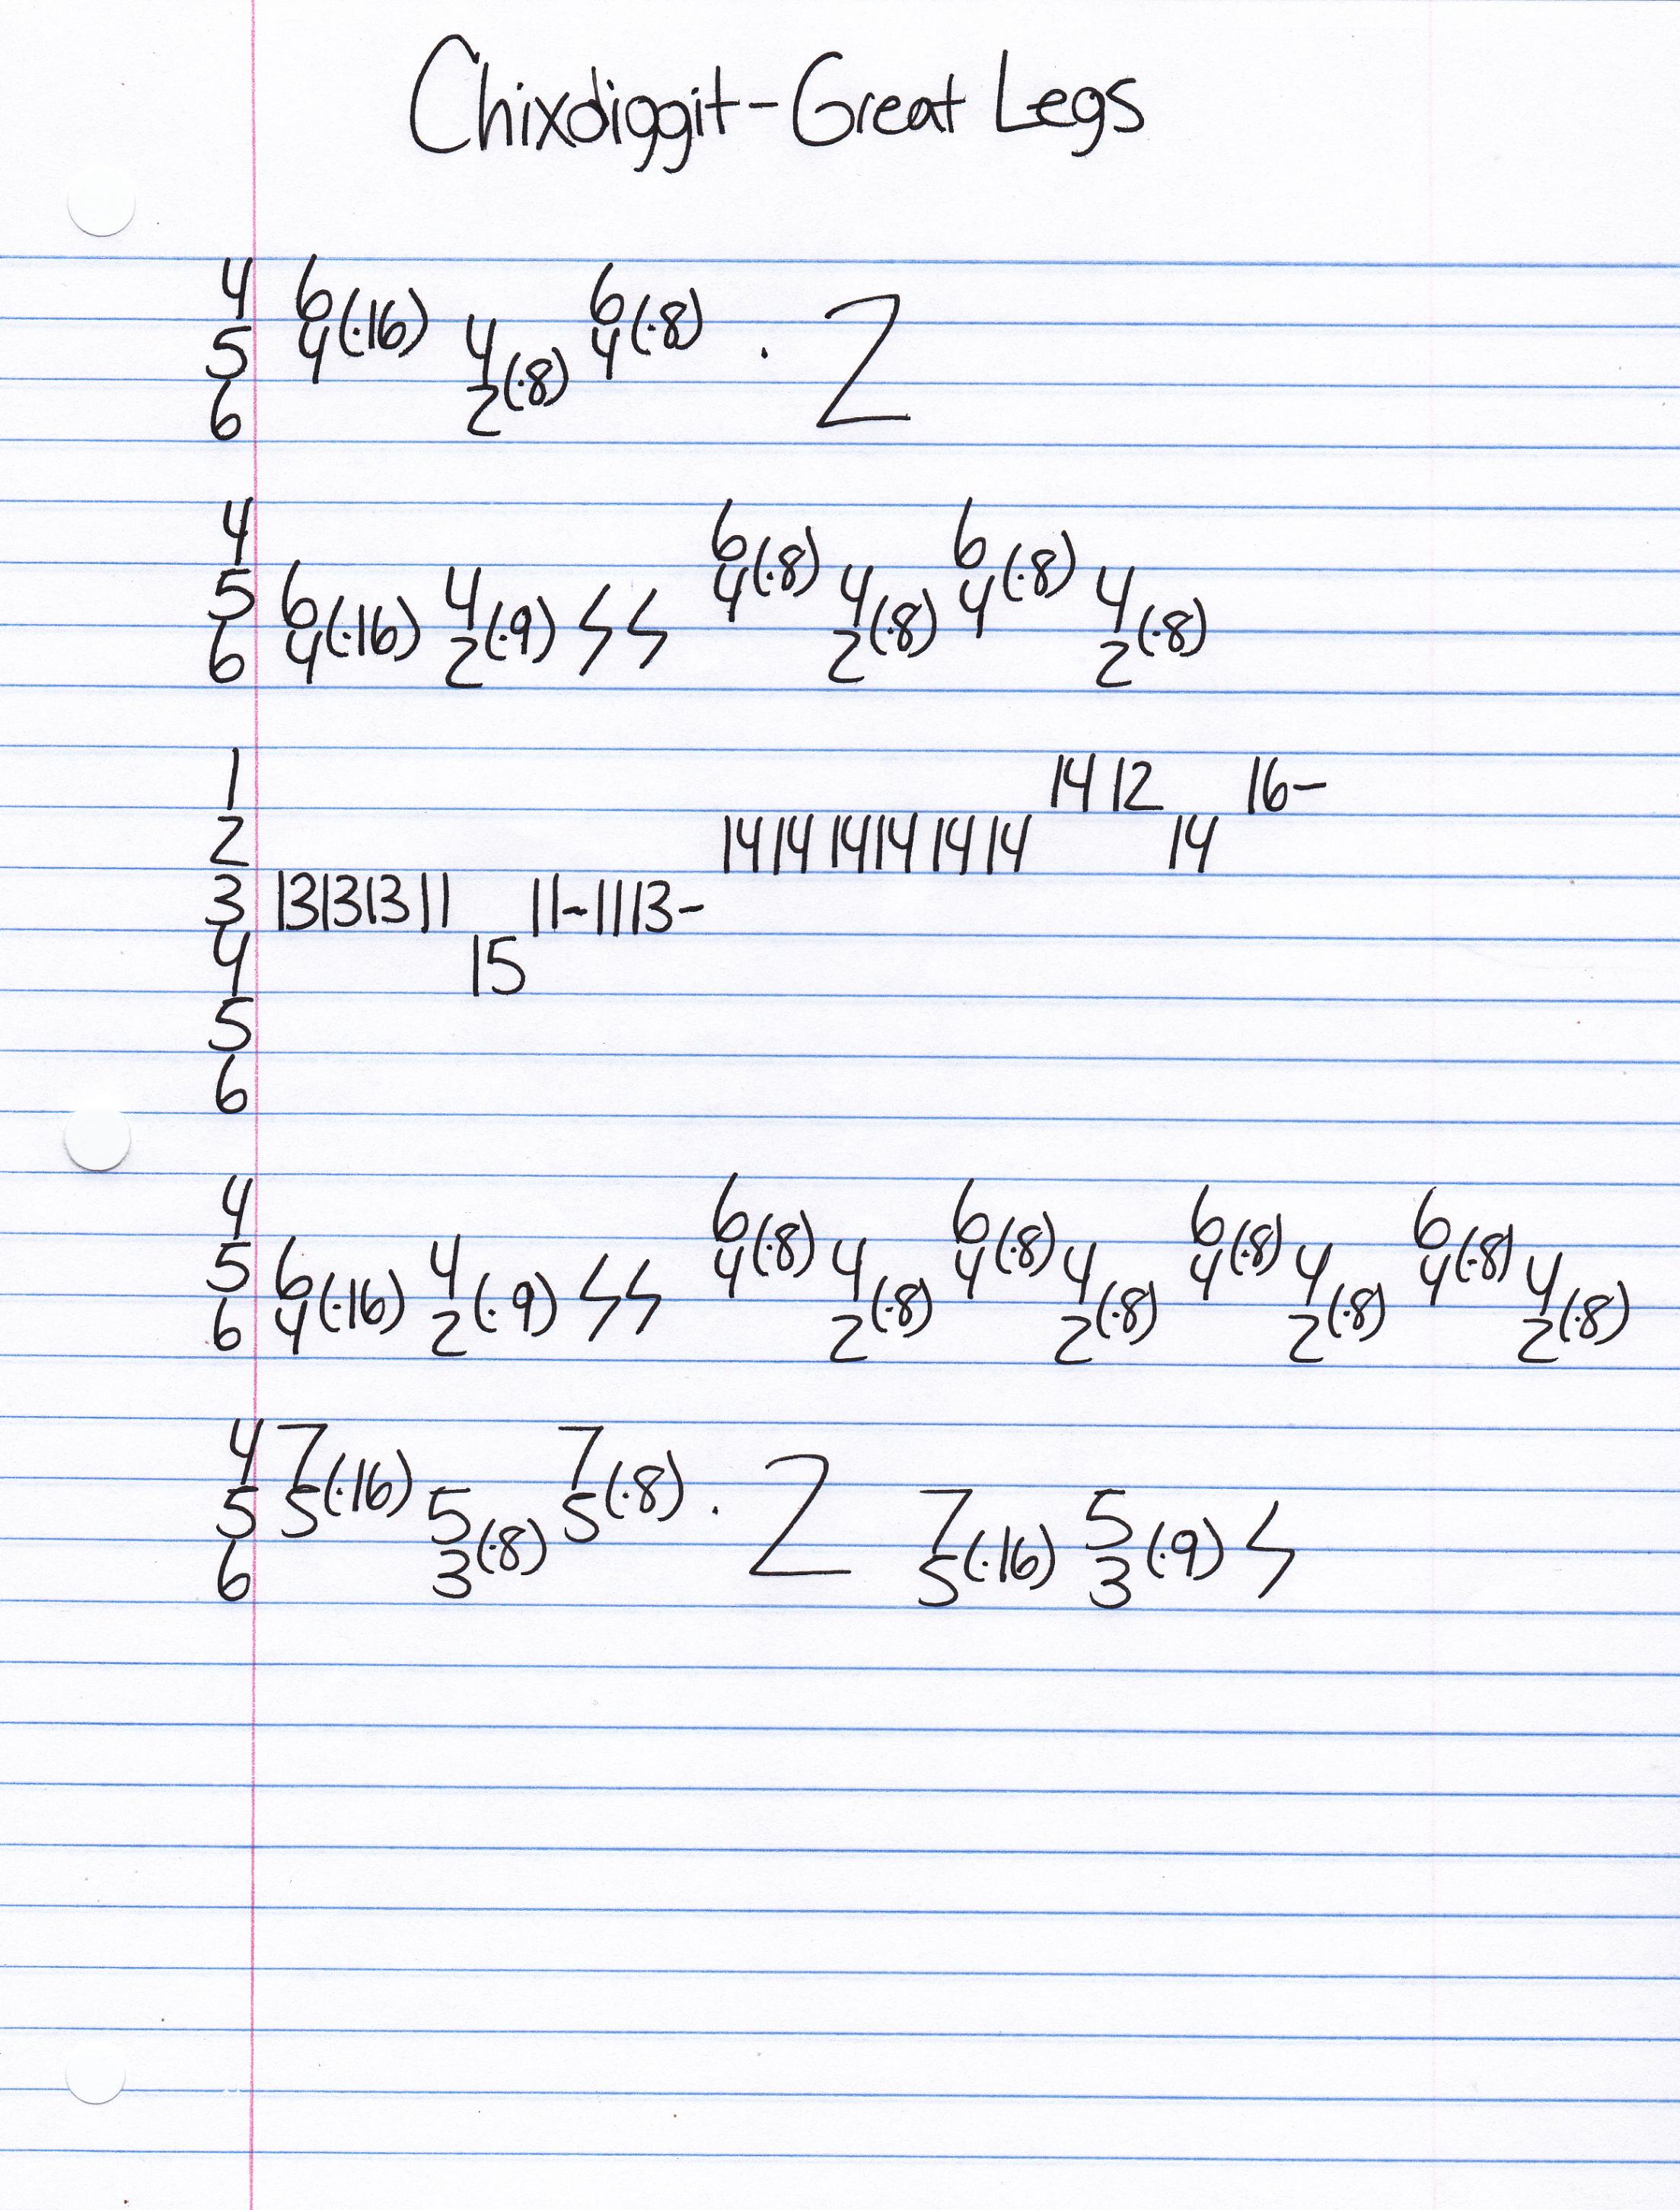 Chixdiggit-Great Legs
4 6 6
5 4(·16) 4 4(·8) · 2
6 2(·8)
4 6 6
5 6 4 4(·8) 4 4(·8) 4
6 4(·16) 2(·9) ϟ ϟ 2(·8) 2(·8)
1 14 12 16-
2 14 14 14 14 14 14 14
3 13 13 13 11 11-11 13-
4 15
5
6
4 6 6 6 6
5 6 4 4(·8) 4 4(·8) 4 4(·8) 4 4(·8) 4
6 4(·16) 2(·9) ϟ ϟ 2(·8) 2(·8) 2(·8) 2(·8)
4 7 7
5 5(·16) 5 5(·8) · 2 7 5
6 3(·8) 5(·16) 3(·9) ϟ